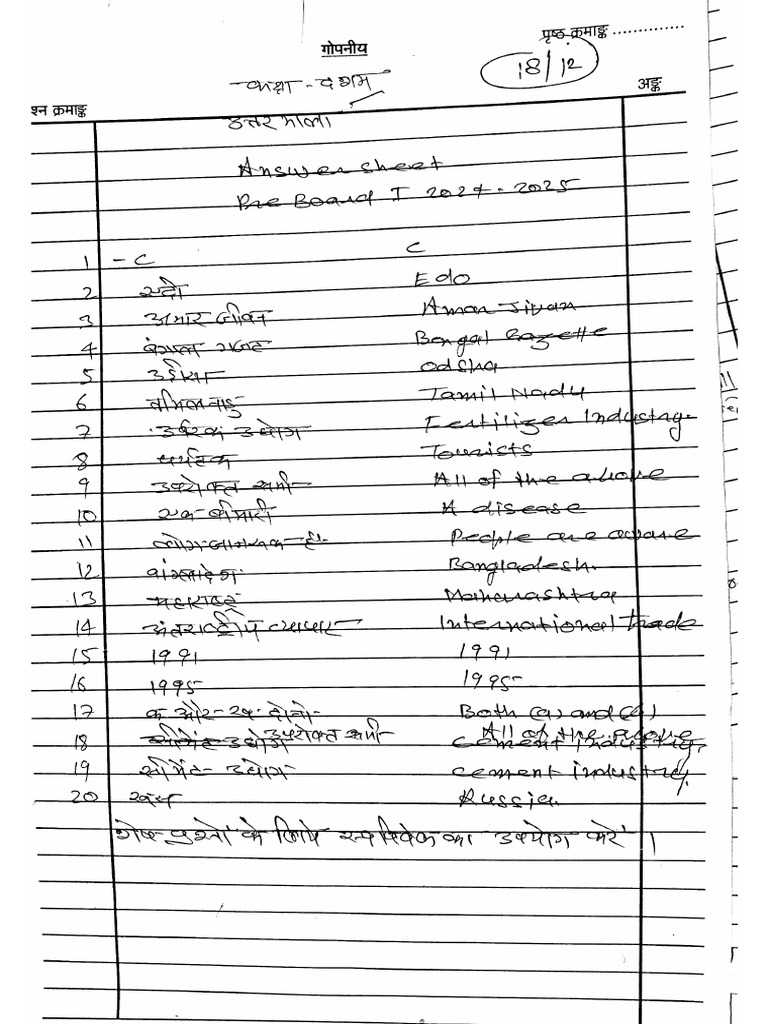 पृष्ठ क्रमाङ्क ..............
गोपनीय
18/12
कक्षा - दशम
अङ्क
श्न क्रमाङ्क
उत्तर माला
Answer sheet
Pre Board I 2024-2025
1 - C C
2 एदो Edo
3 अमार जीबन Amar Jiban
4 बंगाल गजट Bengal Gazette
5 उड़ीसा Odsha
6 तमिलनाडु Tamil Nadu
7 उर्वरक उद्योग Fertilizer Industry.
8 पर्यटक Tourists
9 उपरोक्त सभी All of the above
10 एक बीमारी A disease
11 लोग जागरूक है। People are aware
12 बांग्लादेश Bangladesh.
13 महाराष्ट्र Maharashtra
14 अंतराष्ट्रीय व्यापार International trade
15 1991 1991
16 1995 1995
17 क और ख दोनो Both (a) and (b)
18 सीमेंट उद्योग उपरोक्त सभी cement industry, All of the above
19 सीमेंट उद्योग cement industry,
20 Russia.
शेष प्रश्नों के लिये स्व विवेक का उपयोग करें।